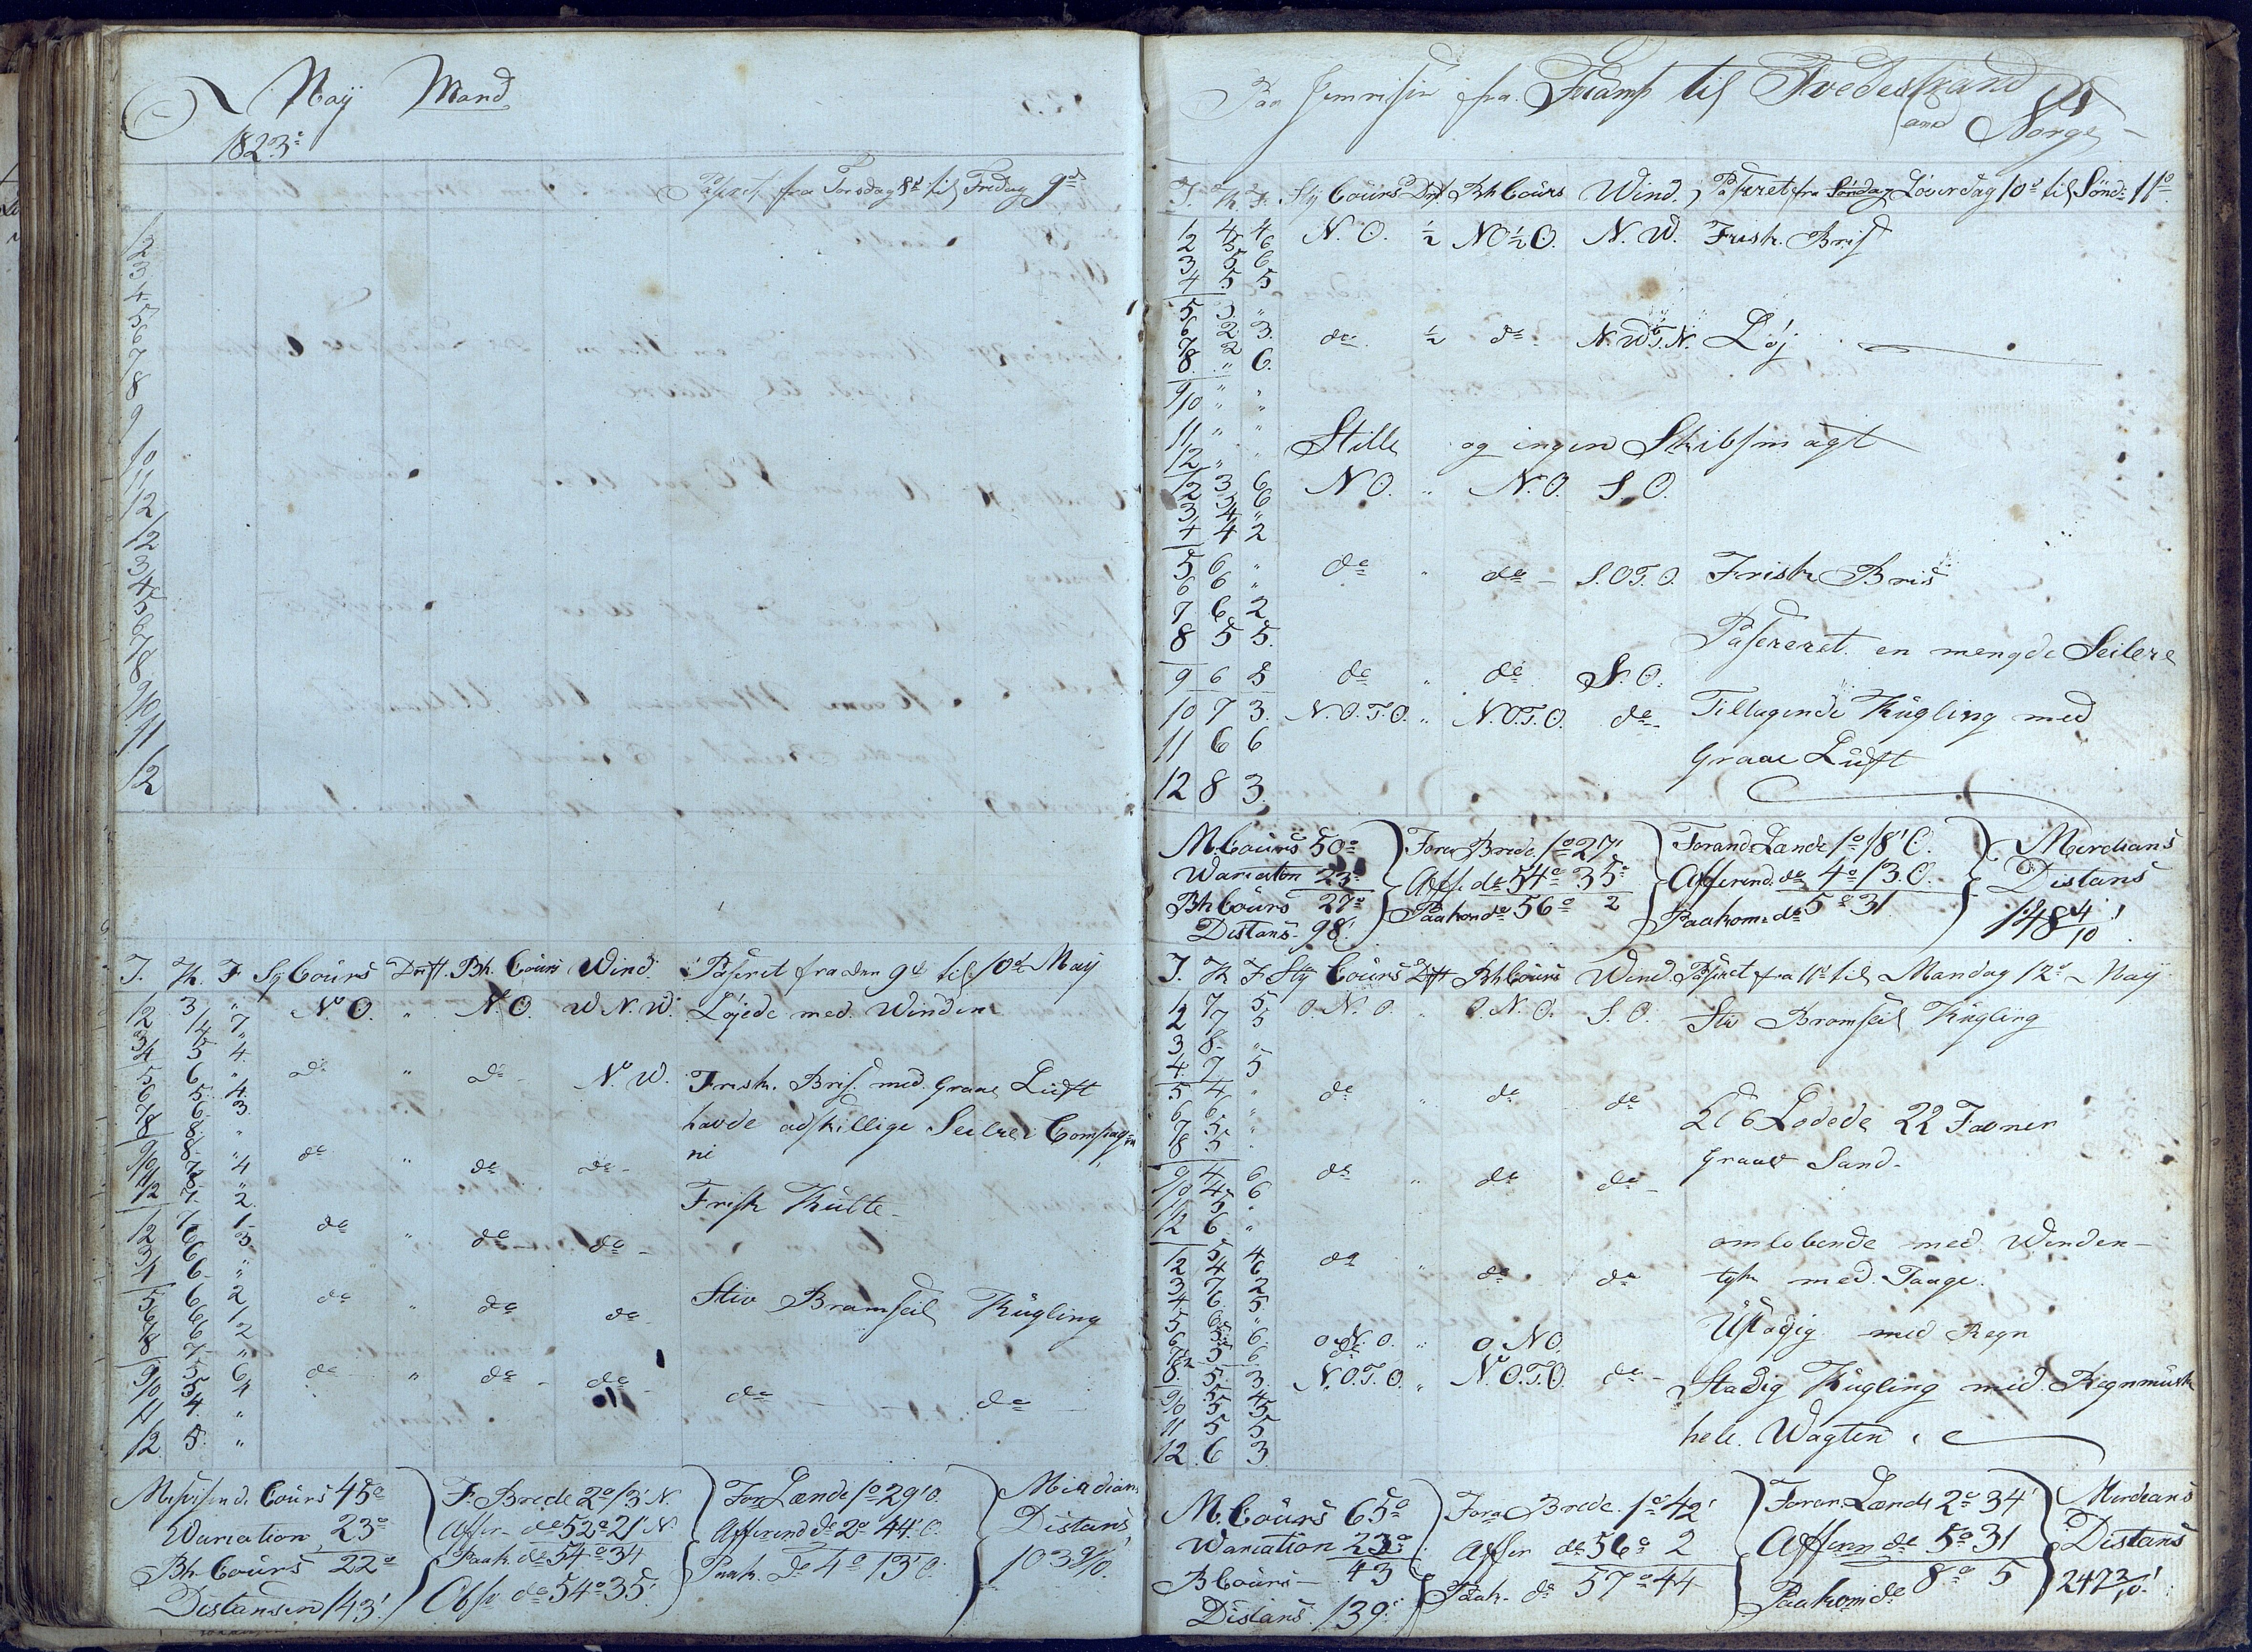 Maÿ Maned
1823
Paseret fra Torsdag 8d til Fredag 9d
1
2
3
4
5
6
7
8
9
10
11
12
1
2
3
4
5
6
7
8
9
10
11
12
T. K. F Sty Cours Drift. Bh. Cours Wind. Paseret fra den 9d til 10d Maÿ
1 3 " N. O. " N. O. W N. W. Løjede med Winden
2 4 7
3 4 "
4 5 4
5 6 " do " do N. W. Frisk. Bris. med Graae Luft
6 5 4
7 6 3 havde adskillige Seilere i Compag=
8 8 " ni
9 8 " do " do do
10 7 4
11 8 " Frisk Kulte
12 7 2
1 7 1 do " do do
2 6 3
3 6 "
4 6 "
5 6 2 do " do do Stiv Bramseil Kugling
6 6 1
7 6 2
8 7 "
9 5 6 do " do do do do
10 5 4
11 4 "
12 5 "
Misvisende Cours 45° F. Brede 2° 13' N. For Lænde 1° 29' O. Meridians
Wariation 23° Affer. do 52° 21' N. Afferend do 2° 44' O. Distans
Bh Cours 22° Paak. do 54° 34 Paak. do 4° 13' O. 103 9/10
Distansen 143' Obsr do 54° 35'
Paa Hemreisen fra Fecamp til Tvedestrand
Norge
T. K. F. Sty Cours Drift Bh Cours Wind. Paseret fra Søndag Løverdag 10d til Sønd: 11d
1 4 4 N. O. ½ NO½O. N. W. Frisk. Bris
2 5 6
3 5 6
4 5 5
5 3 "
6 2 3 do ½ do N. W. T. N. Løj
7 2
8 " 6
9 " "
10 " "
11 " " Stille og ingen Skibsmagt
12 " "
1 3 6 N O. " N. O. S. O.
2 3 6
3 4 "
4 4 2
5 6 " do " do S. O T. O. Frisk Bris
6 6 "
7 6 2
8 5 5 Pasereret en mengde Seilere
9 6 3 do " do S. O.
10 7 3 N. O. T. O. " N. O. T. O. do Tiltagende Kugling med
11 6 6 Graae Luft
12 8 3
M. Cours 50° Foran Brede 1° 27' Forand Lænde 1° 18' O. Meredians
Wariation 23° Aff. do 54° 35' Afferend. do 4° 13. O. Distans
Bh Cours 27° Paakom do 56° 2 Paakom. do 5° 31 148 4/10
Distans 98'
T. K F Sty Cours Dft Bh Cours Wind. Paseret fra 11d til Mandag 12d Maÿ
1 7 5 O. N. O. " O. N. O. S. O. Stiv Bramseil Kugling
2 7 5
3 8 "
4 7 5
5 4 " do " do do
6 6 " Kl 6 Lodede 22 Favner
7 5 "
8 5 " Graae Sand
9 4 6 do " do do
10 4 6
11 5 "
12 6 " omløbende med Winden
1 5 4 do " do do
2 4 6 tyk med Taage
3 7 2
4 6 5
5 6 " Ustadig med Regn
6 5 6 O. N. O. " O. N O.
7 5 6
8 5 3 N. O. T. O. " N. O. T. O. do Stadig Kugling med Regnmusk
9 5 4
10 5 5
11 5 5 hele Wagten
12 6 3
M. Cours 65° Foran Brede 1° 42' Foran Lænde 2° 34' Merdians
Wariation 23° Affer do 56° 2 Afferen do 5° 31 Distans
B Cours 43 Paak. do 57° 44 Paakom do 8° 5 247 3/10
Distans 139'